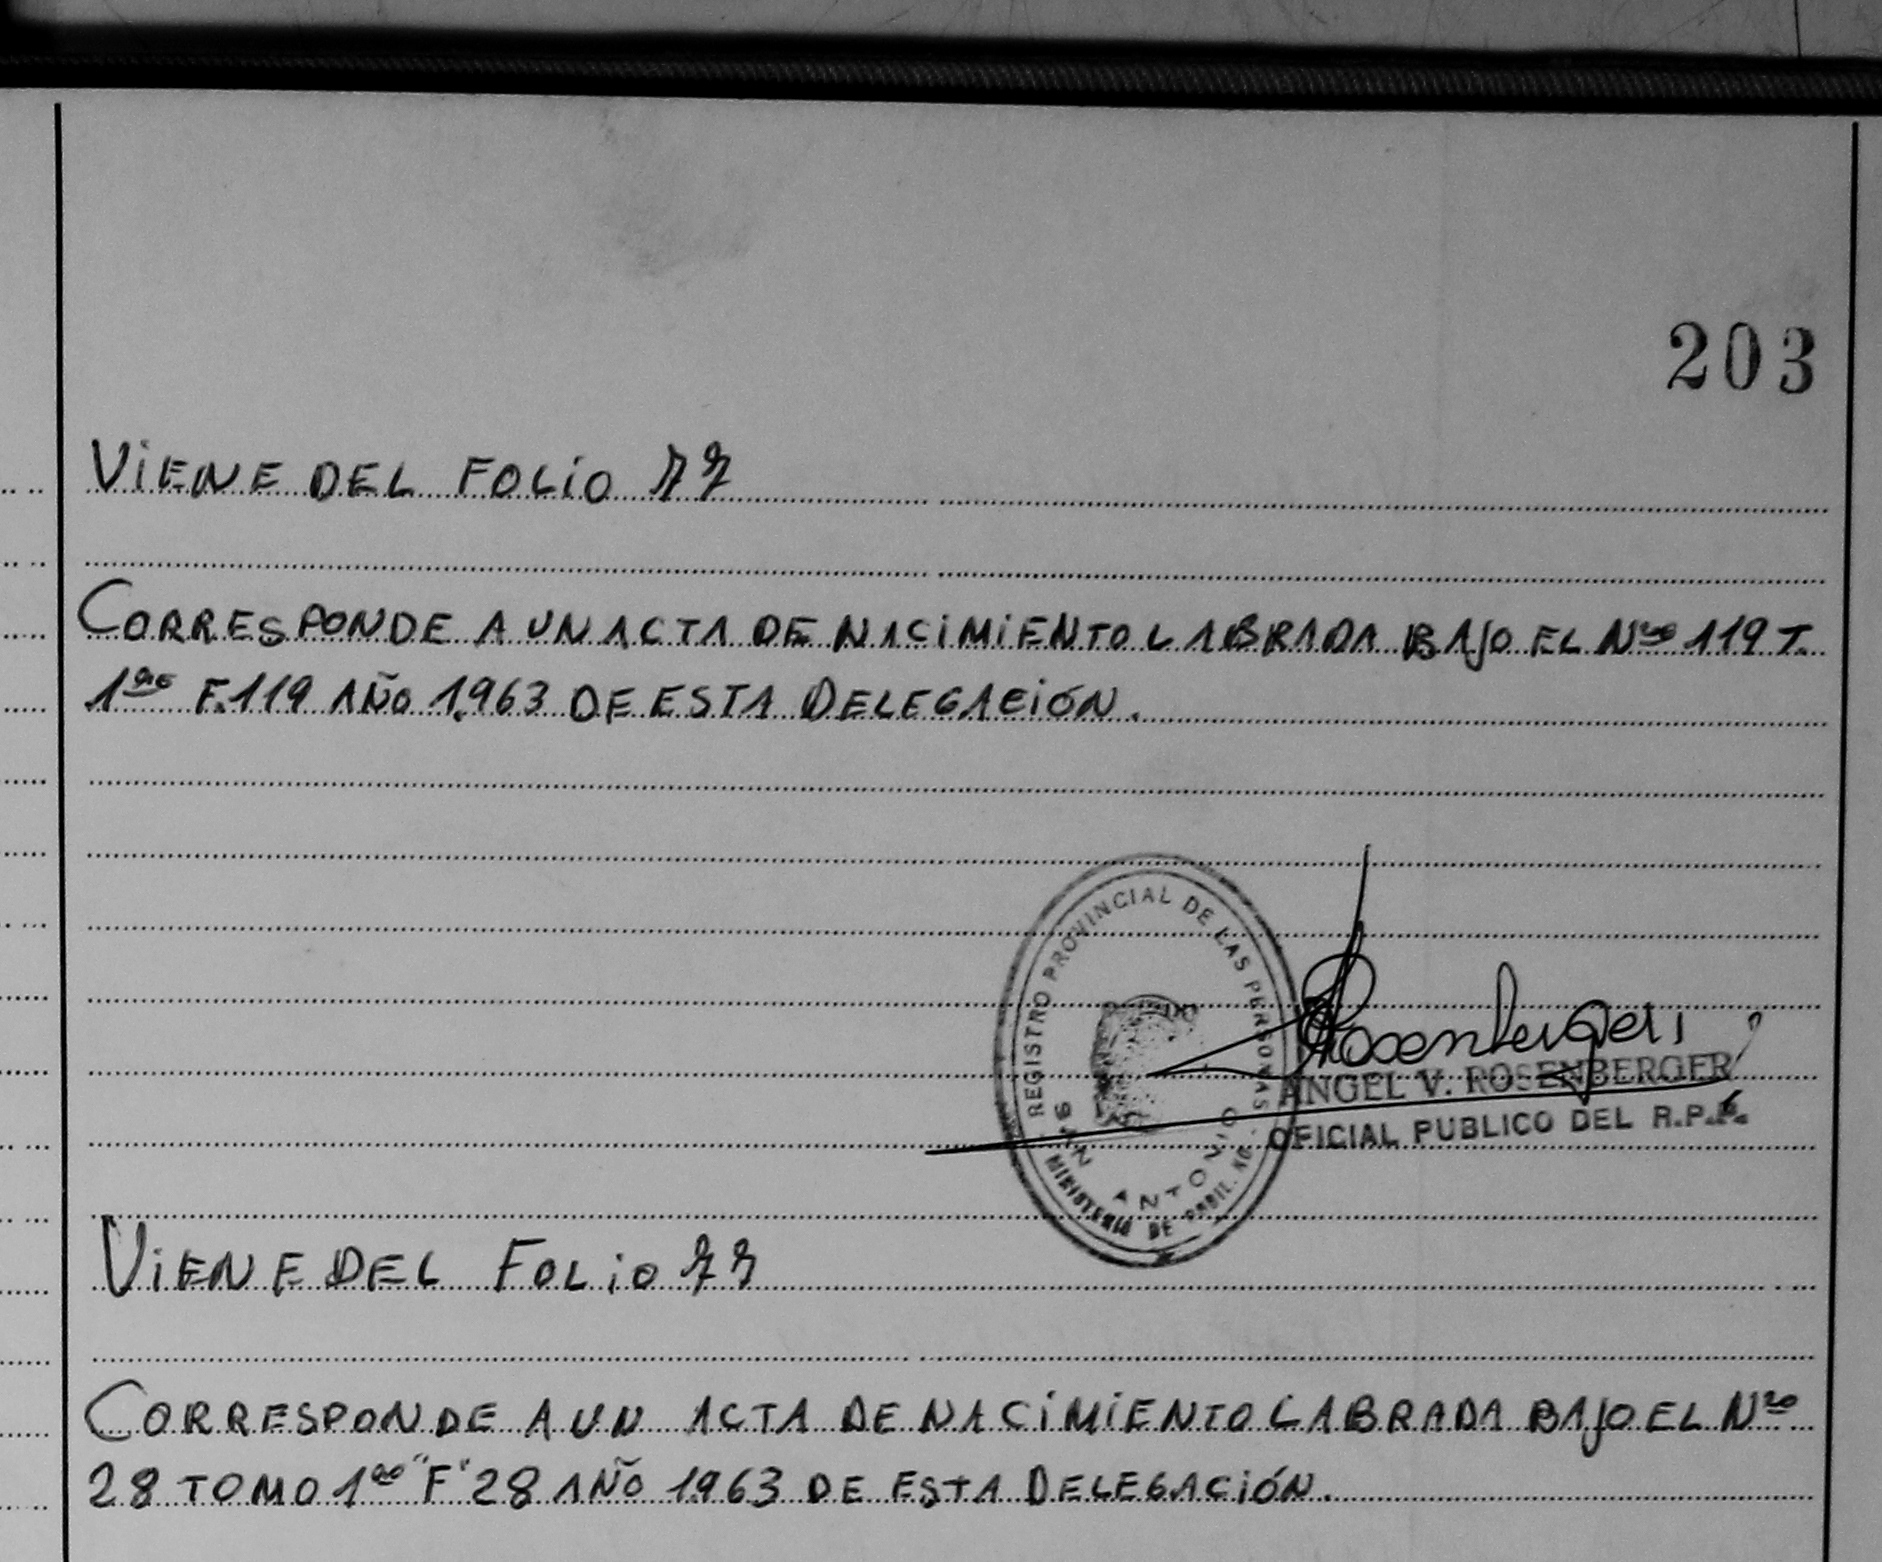 203
VIENE DEL FOLIO 77
CORRESPONDE A UN ACTA DE NACIMIENTO LABRADA BAJO EL Nro 119 T.
1ro F.119 AÑO 1.963 DE ESTA DELEGACIÓN.
REGISTRO PROVINCIAL DE LAS PERSONAS
SAN ANTONIO
MINISTERIO DE
Rosenberger
ANGEL V. ROSENBERGER
OFICIAL PUBLICO DEL R.P.P.
VIENE DEL FOLIO 77
CORRESPONDE A UN ACTA DE NACIMIENTO LABRADA BAJO EL Nro
28 TOMO 1ro "F" 28 AÑO 1963 DE ESTA DELEGACIÓN.